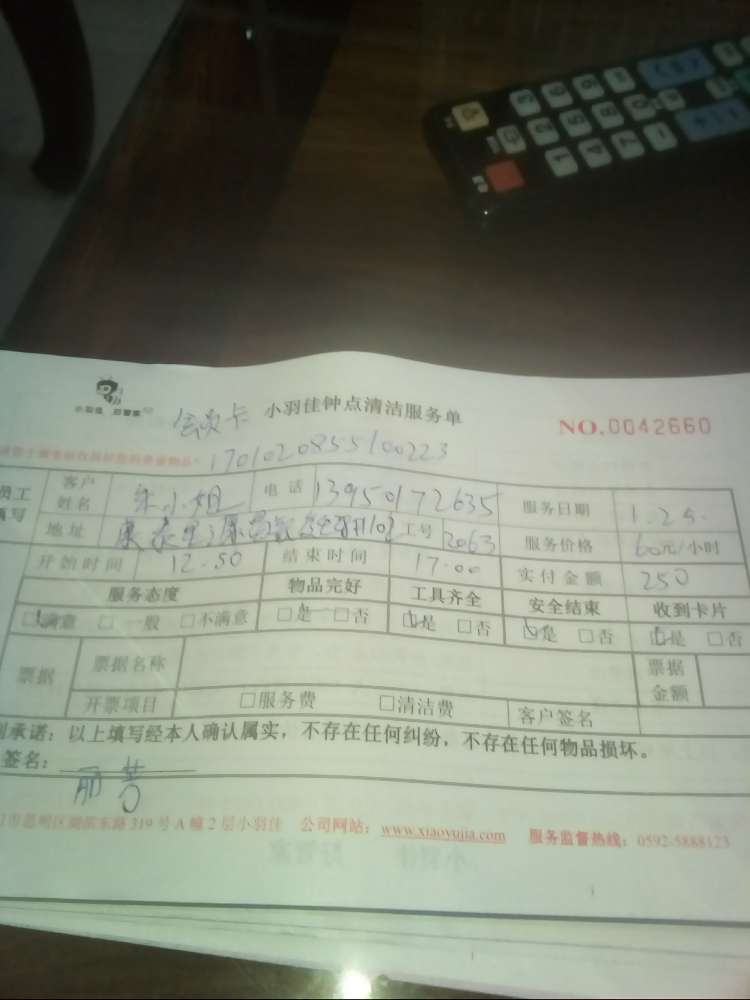 小羽佳 巴管家
会员卡 小羽佳钟点清洁服务单 NO.0042660
1701020855100223
员工填写 客户姓名 朱小姐 电话 13950172635 服务日期 1.24.
地址 康泰里 102 工号 2063 服务价格 60元/小时
开始时间 12.50 结束时间 17.00 实付金额 250
服务态度 物品完好 工具齐全 安全结束 收到卡片
□满意 □一般 □不满意 □是 □否 □是 □否 □是 □否 □是 □否
票据 票据名称 票据金额
开票项目 □服务费 □清洁费 客户签名
承诺：以上填写经本人确认属实，不存在任何纠纷，不存在任何物品损坏。
签名：
市思明区湖滨东路 319 号 A 幢 2 层小羽佳 公司网站：www.xiaoyujia.com 服务监督热线：0592-5888123
3 6 9
2 5 8 0
1 4 7 -